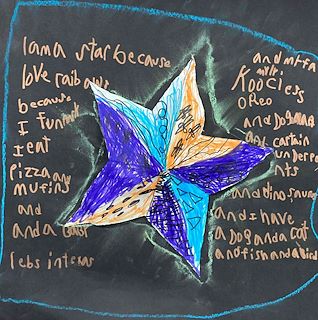 I am a star because
love raibows
because
I fun
I eat
pizza and
mufins
and
and a
lebs in texas
and
Koocies
oreo
and Dog
and cartain
underpe
nts
and dinosaurs
and I have
a Dog and a cat
and fish and a bird